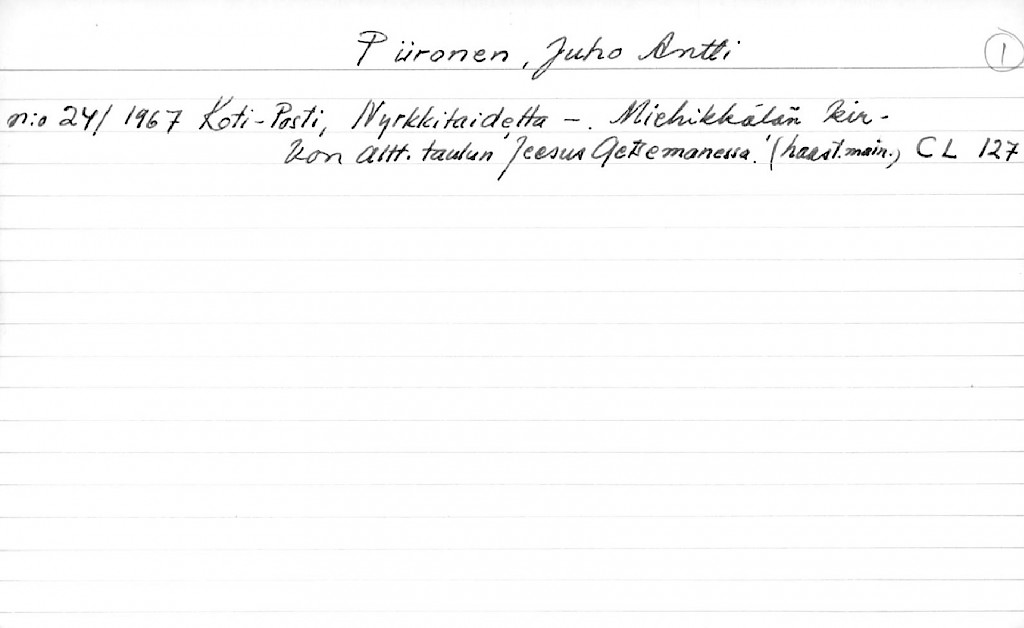 Piironen, Juho Antti 1
n:o 24/ 1967 Koti-Posti, Nyrkkitaidetta -. Miehikkälän kir-
kon altt. taulun 'Jeesus Getsemanessa.' (haast.main.) CL 127